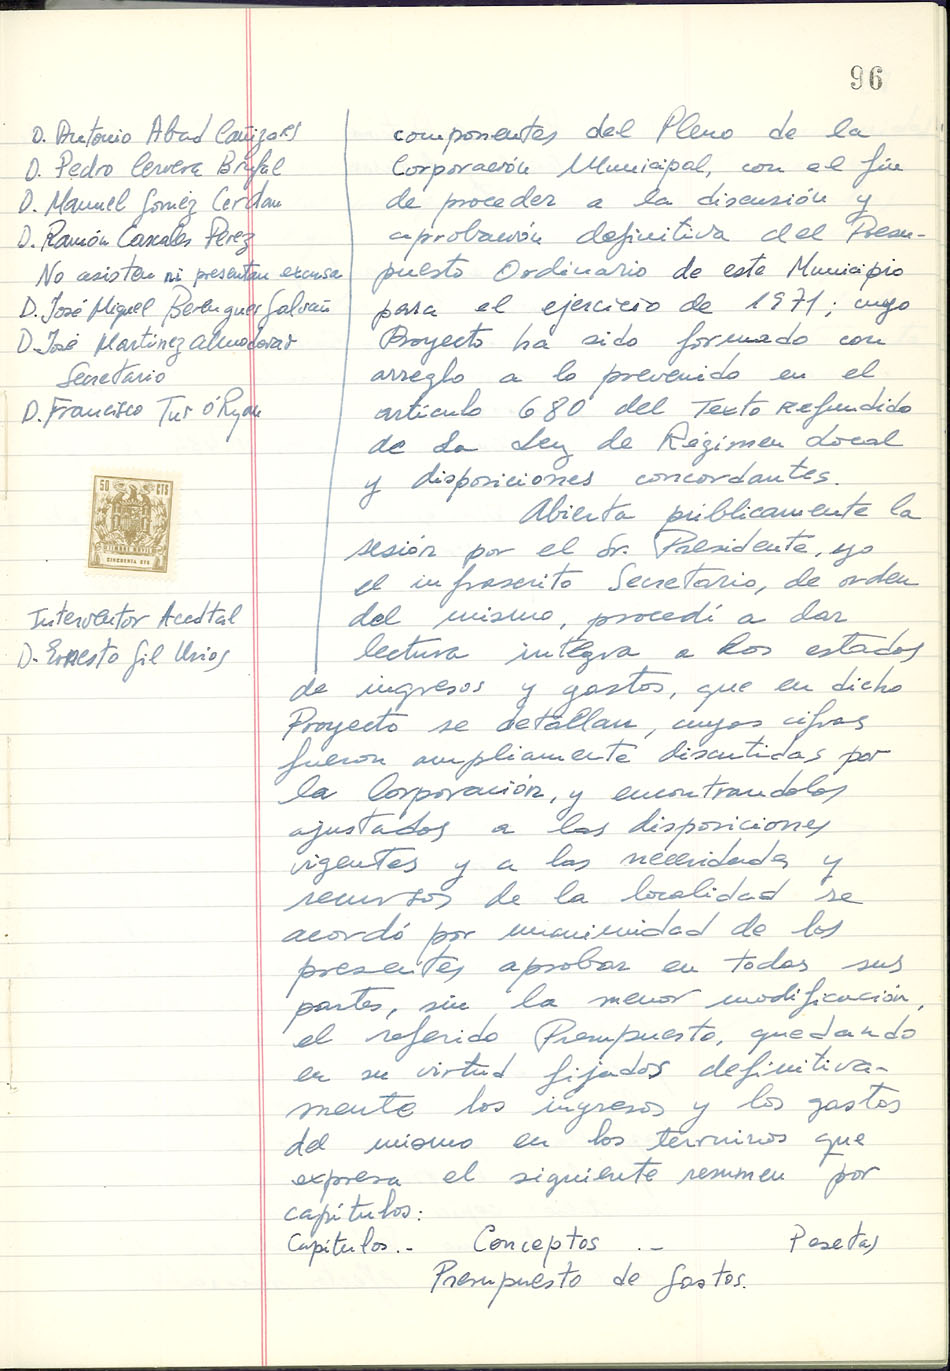 96
D. Antonio Abad Cañizares
D. Pedro Cervera Brufal
D. Manuel Gomez Cerdan
D. Ramón Cascales Perez
No asisten ni presentan excusa
D. José Miguel Berenguer Galvañ
D. José Martinez Almodovar
Secretario
D. Francisco Tur O'Ryan
50 CTS
TIMBRE MOVIL
CINCUENTA CTS
Interventor Acctal
D. Ernesto Gil Urios
componentes del Pleno de la
Corporación Municipal, con el fin
de proceder a la discusión y
aprobación definitiva del Presu-
puesto Ordinario de este Municipio
para el ejercicio de 1971; cuyo
Proyecto ha sido formado con
arreglo a lo prevenido en el
artículo 680 del Texto Refundido
de La Ley de Régimen Local
y disposiciones concordantes.
Abierta públicamente la
sesión por el Sr. Presidente, yo
el infrascrito Secretario, de orden
del mismo, procedí a dar
lectura integra a los estados
de ingresos y gastos, que en dicho
Proyecto se detallan, cuyas cifras
fueron ampliamente discutidas por
la Corporación, y encontrandolos
ajustados a las disposiciones
vigentes y a las necesidades y
recursos de la localidad se
acordó por unanimidad de los
presentes aprobar en todas sus
partes, sin la menor modificación,
el referido Presupuesto, quedando
en su virtud fijados definitiva-
mente los ingresos y los gastos
del mismo en los terminos que
expresa el siguiente resumen por
capítulos:
Capítulos.- Conceptos .- Pesetas
Presupuesto de Gastos.